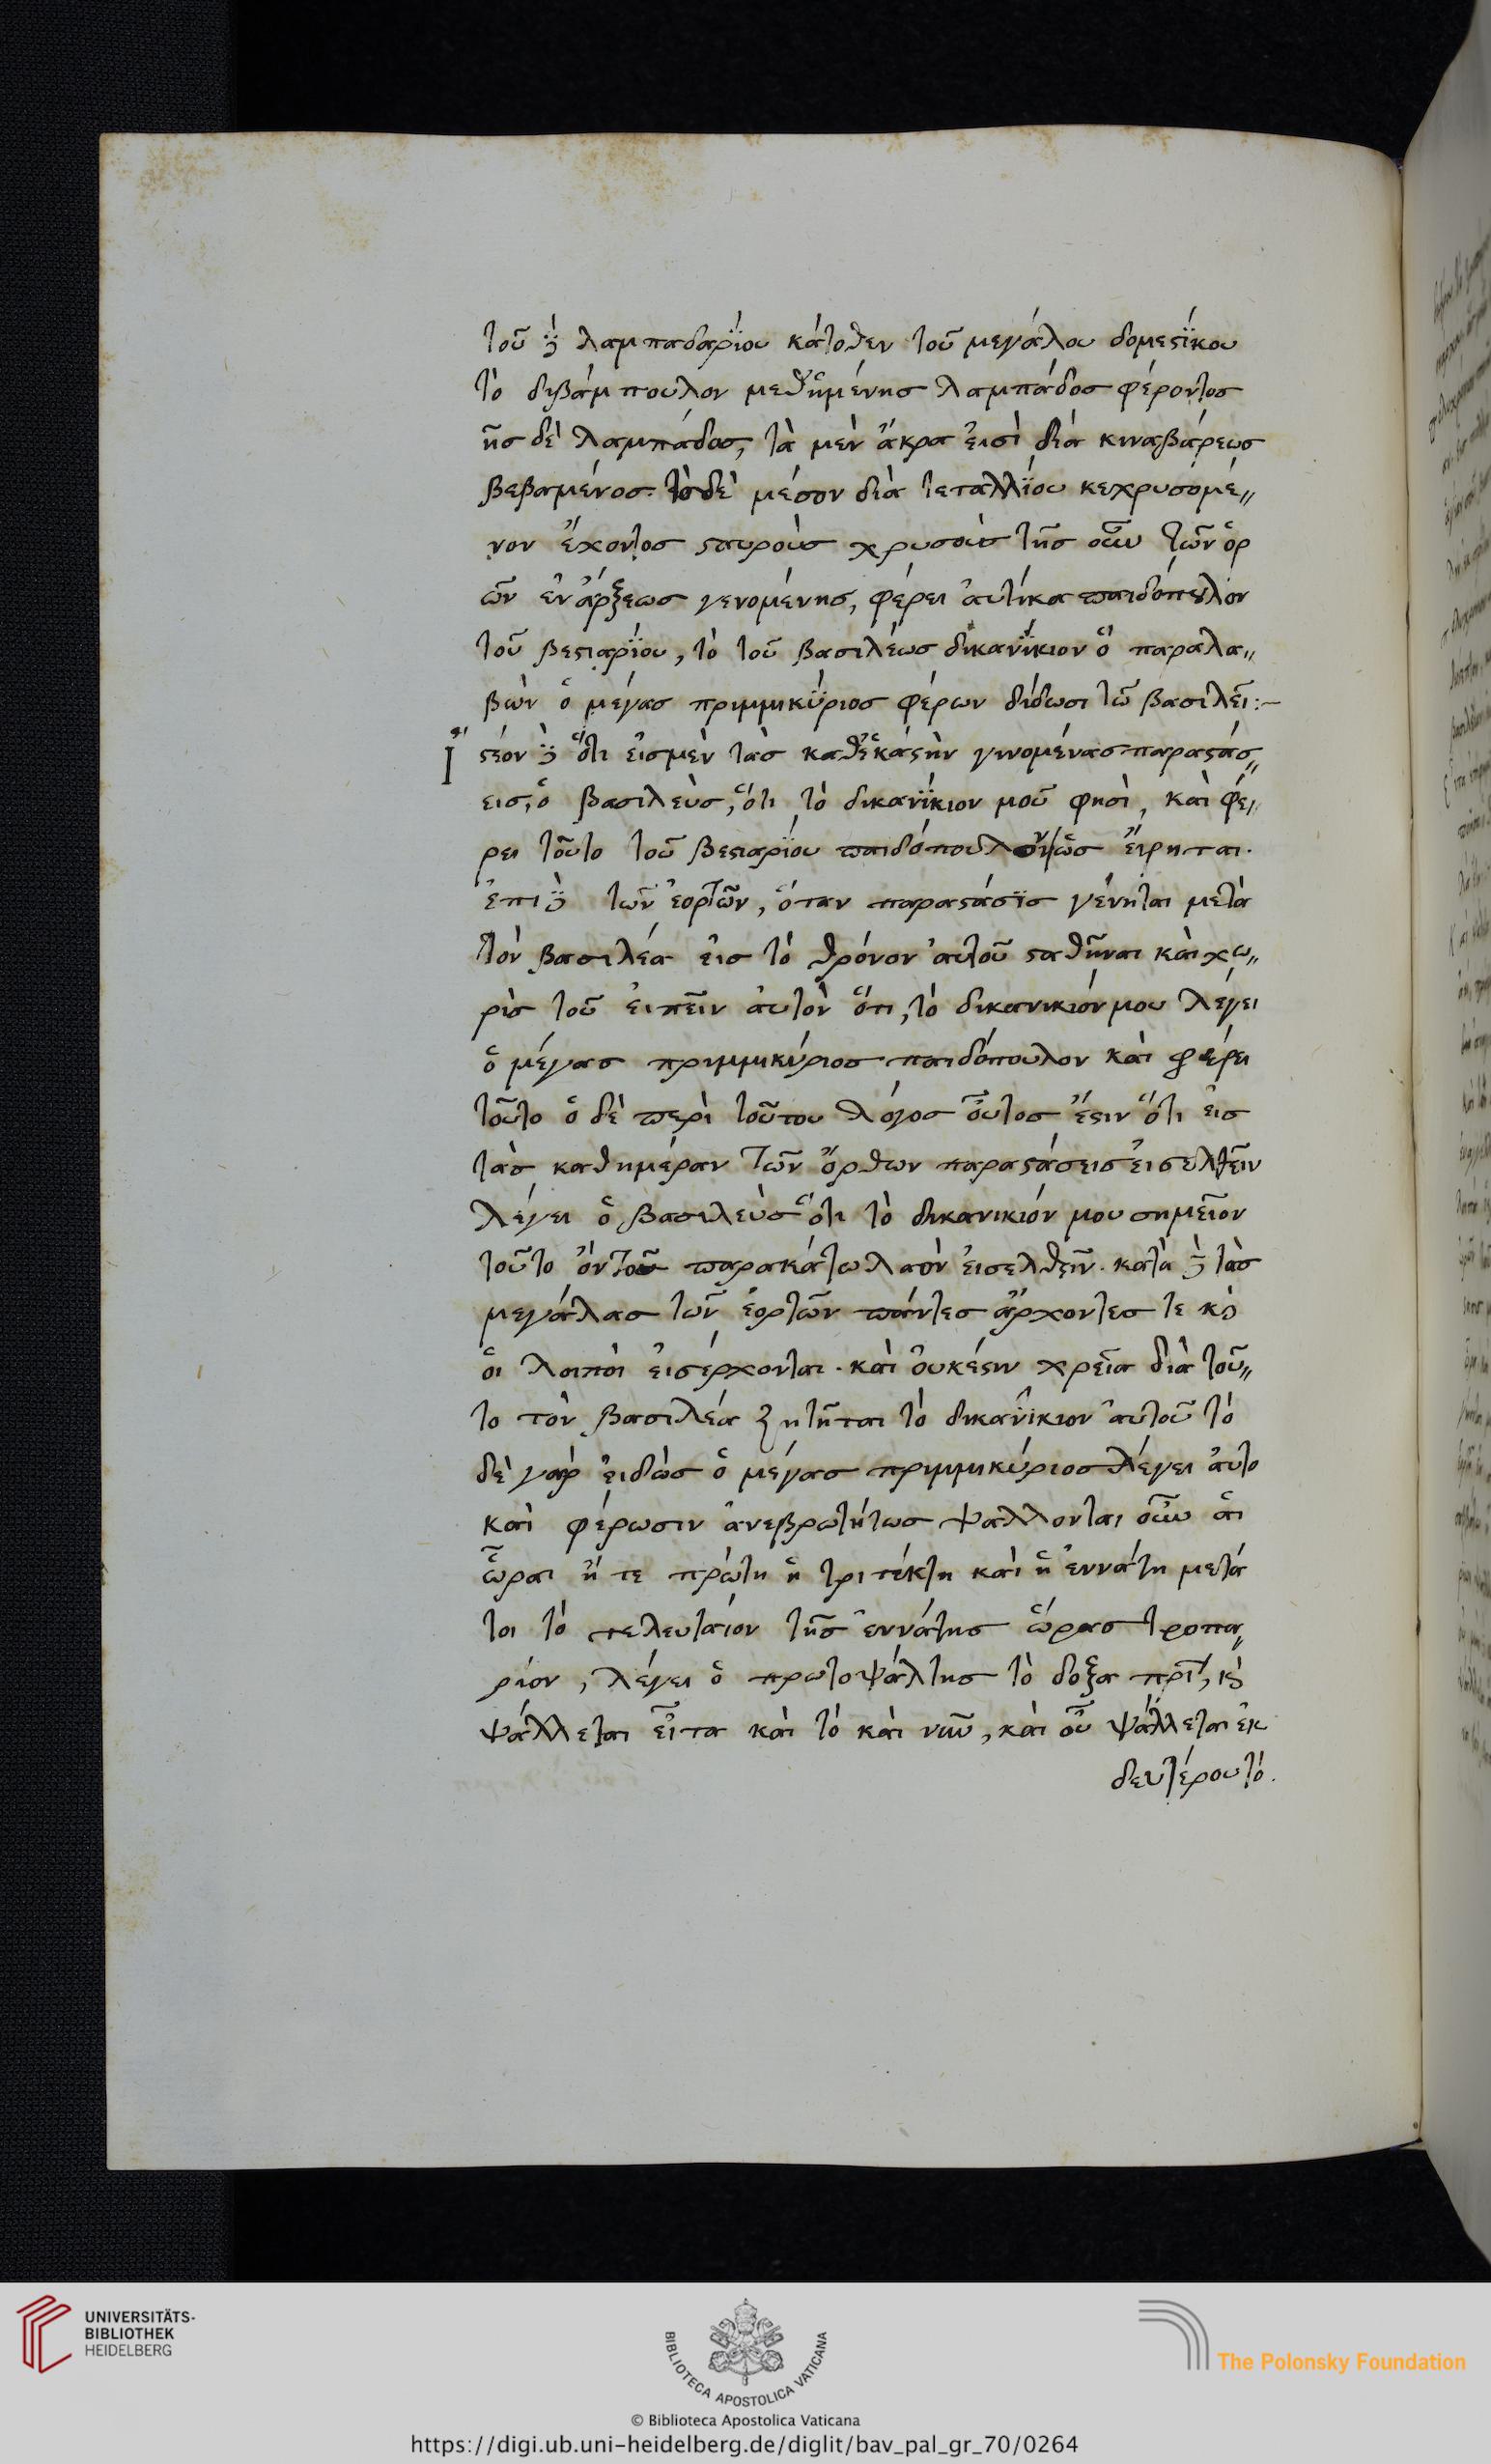 τοῦ δὲ λαμπαδαρΐου κάτοθεν τοῦ μεγάλου δομεστΐκου
τὸ διβάμπουλον μεθ' ἡμένης λαμπάδος φέροντος
ῆς δὲ λαμπάδος, τὰ μὲν ἄκρα εἰσὶ διὰ κιναβάρεως
βεβαμένος. τὸ δὲ μέσον διὰ πεταλλΐου κεχρυσόμέ〃
νον ἔχοντος σταυροὺς χρυσοὺς τῆς οὖν τῶν ὁρ
ῶν ἐνάρξεως γενομένης, φέρει ἀυτίκα παιδόπουλον
τοῦ βεστιαρΐου, τὸ τοῦ βασιλέως δικανΐκιον ὃ παραλα〃
βὼν ὁ μέγας πριμμικΰριος φέρων δίδωσι τῶ βασιλεῖ:–
Ἰστέον δὲ ὅτι εἰσμὲν τὰς καθ' ἑκάστην γινομένας παραστάσ〃
εις, ὁ βασιλεὺς, ὅτι τὸ δικανΐκιον μοῦ φησὶ, καὶ φέ〃
ρει τοῦτο τοῦ βεστιαρΐου παιδόπουλον ὡς ἔιρηται.
ἐπὶ δὲ τῶν ἑορτῶν, ὅταν παραστάσϊς γένηται μετὰ
τὸν βασιλέα εἰς τὸ θρόνον ἀυτοῦ σταθῆναι καὶ χω〃
ρὶς τοῦ ἐιπεῖν ἀυτὸν ὅτι, τὸ δικανικιόν μου λέγει
ὁ μέγας πριμμικύριος παιδόπουλον καὶ φέρει
τοῦτο ὁ δὲ περὶ τοῦτου λόγος οὗτος ἔστιν ὅτι εἰς
τὰς καθημέραν τῶν ὄρθων παραστάσεις εἰσελθεῖν
λέγει ὁ βασιλεὺς ὅτι τὸ δικανικιόν μου σημεῖον
τοῦτο ὄν τοῦ παρακάτω λαὸν ἐισελθεῖν. κατὰ δὲ τὰς
μεγάλας τῶν ἑορτῶν πάντες ἄρχοντες τε κὶ
ὁι λοιποὶ ἐισέρχονται. καὶ ὀυκέστιν χρεῖα διὰ τοῦ〃
το τὸν βασιλέα ζητῆται τὸ δικανΐκιον ἀυτοῦ τὸ
δὲ γὰρ ἐιδὼς ὁ μέγας πριμμικύριος λέγει ἀυτο
καὶ φέρωσιν ἀνεβρωτήτως ψάλλονται οὖν ἁι
ὧραι ἥ τε πρώτη ἡ τριτέκτη καὶ ἡ ἐννάτη μετά
τοι τὸ τελευταίον τῆς ἐννάτης ὥρας τροπα〃
ρίον, λέγει ὁ πρωτοψάλτης τὸ δοξα πρῒ, κὶ
ψάλλεται εἶτα καὶ τὸ καὶ νῦν, καὶ οὗ ψάλλεται ἐκ
δευτέρου τὸ.
UNIVERSITÄTS-
BIBLIOTHEK
HEIDELBERG
BIBLIOTECA APOSTOLICA VATICANA
The Polonsky Foundation
© Biblioteca Apostolica Vaticana
https://digi.ub.uni-heidelberg.de/diglit/bav_pal_gr_70/0264